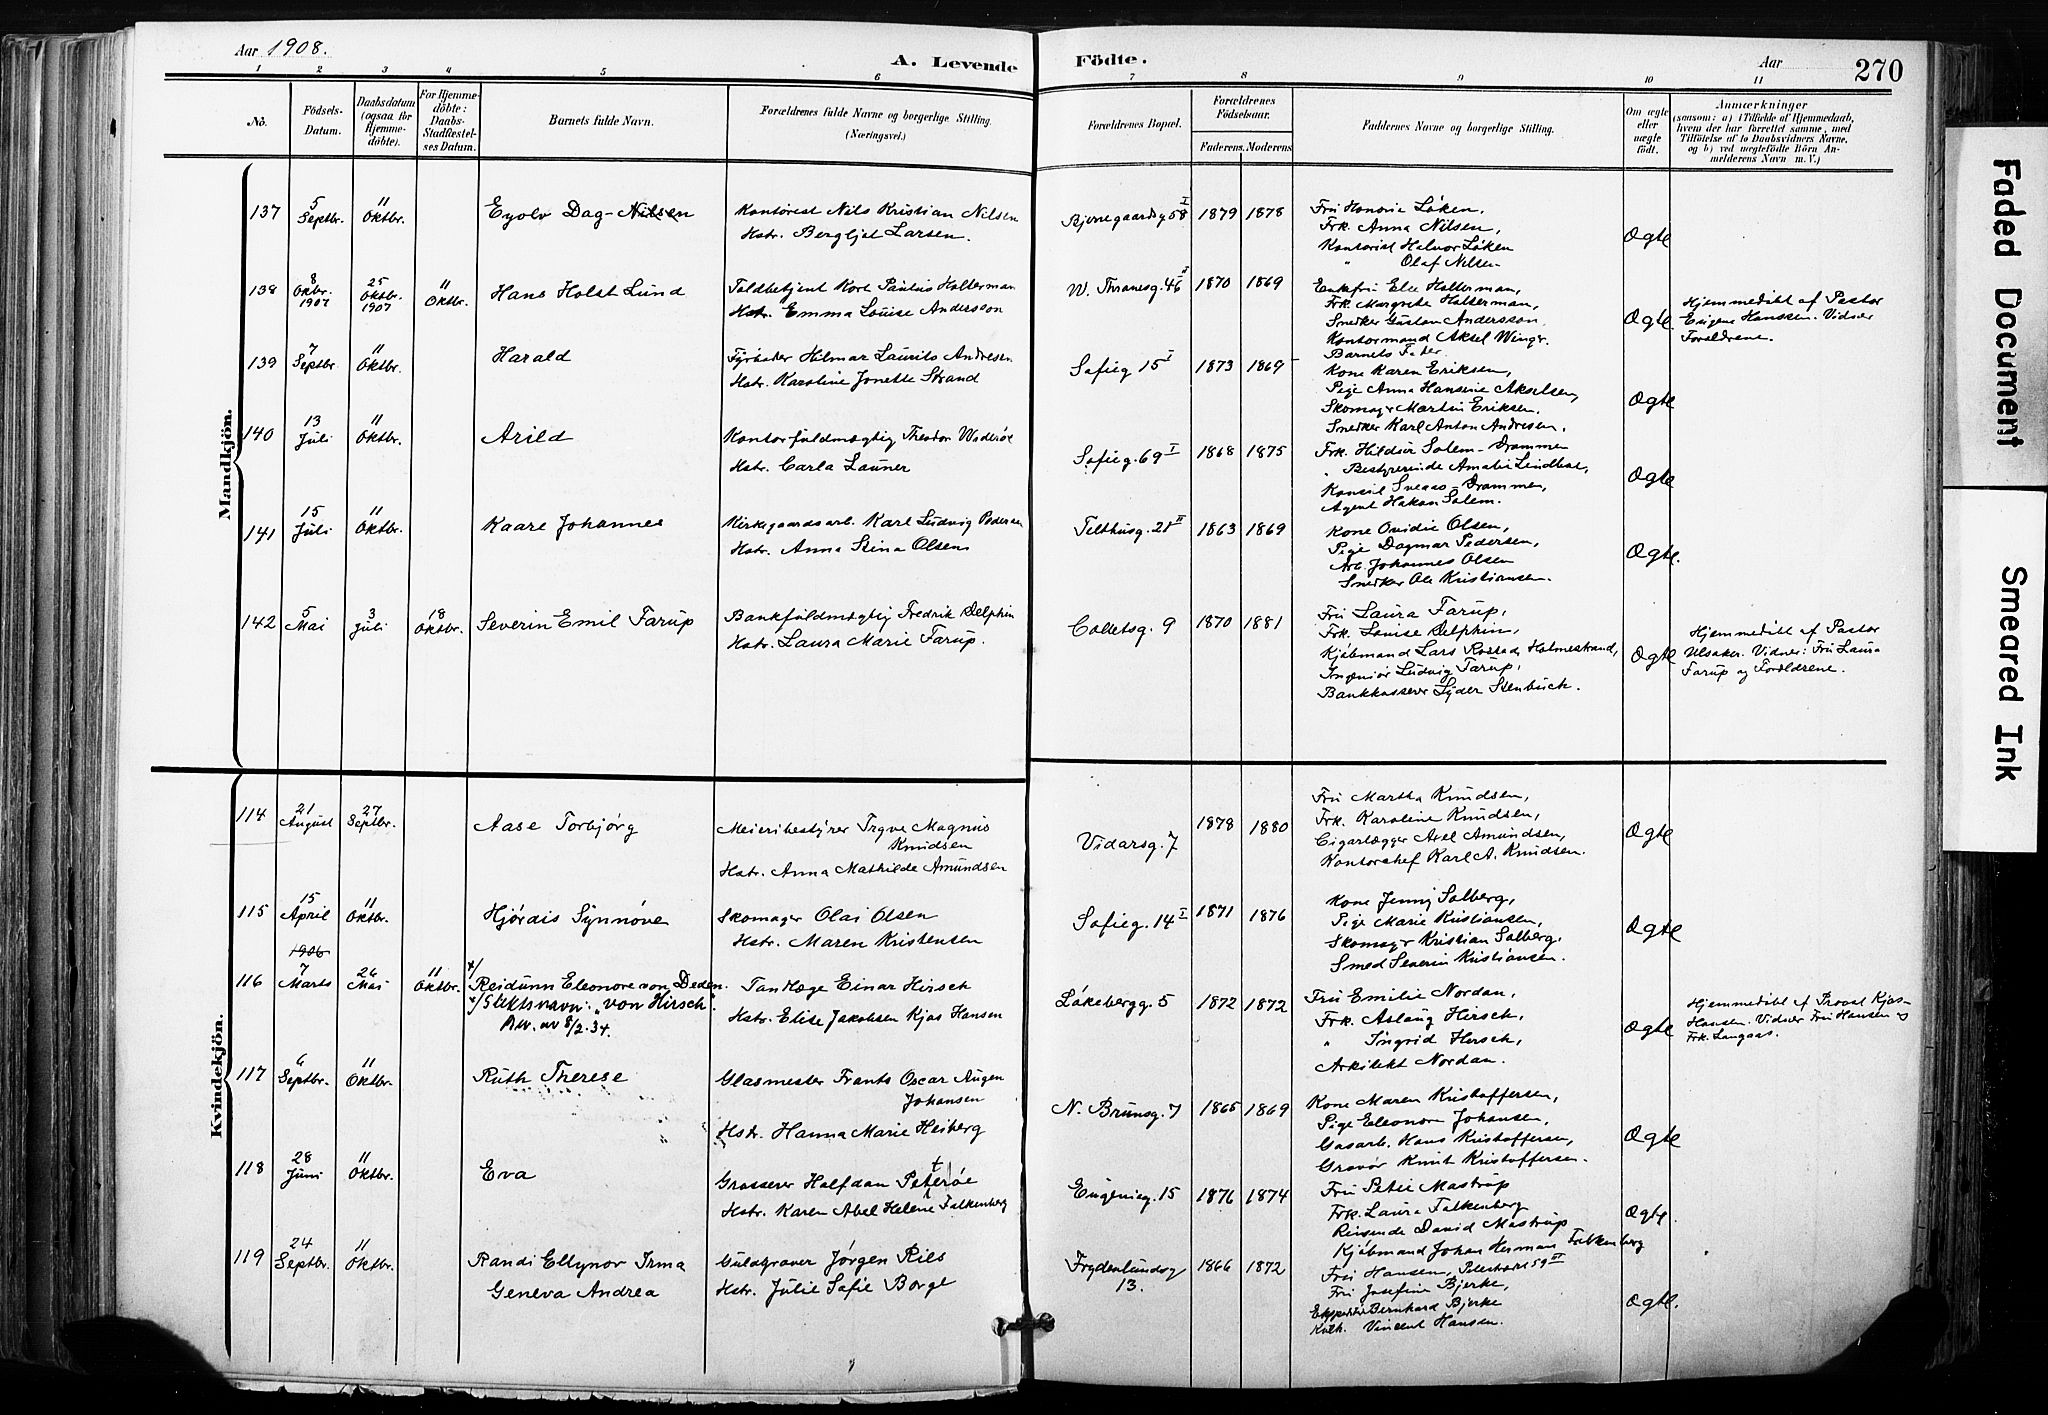 Aar 1908.
A. Levende Födte.
Aar
270
1 2 3 4 5 6 7 8 9 10 11
No.
Födsels-Datum.
Daabsdatum (ogsaa for Hjemmedöbte).
For Hjemmedöbte: Daabs-Stadfæstelses Datum.
Barnets fulde Navn.
Forældrenes fulde Navne og borgerlige Stilling. (Næringsvei.)
Forældrenes Bopæl.
Forældrenes Födselsaar.
Faderens. Moderens
Faddernes Navne og borgerlige Stilling.
Om ægte eller uægte födt.
Anmærkninger
(saasom: a) i Tilfælde af Hjemmedaab, hvem der har forrettet samme, med Tilföielse af to Daabsvidners Navne, og b) ved uægtefödte Börn Anmelderens Navn m. V.)
Mandkjön.
137 5 Septbr. 11 Oktbr. Eyolv Dag-Nilsen
Kontorist Nils Kristian Nilsen
Hstr. Bergljot Larsen.
Bjerregaardsg 58 I 1879 1878
Fru Honoria Løken,
Frk. Anna Nilsen,
Kontorist Halvor Løken
" Olaf Nilsen
Ægte
138 8 Oktbr. 1907 25 Oktbr. 1907 11 Oktbr. Hans Holst Lund
Toldbetjent Kort Paulus Holterman
Hstr. Emma Louise Andersson
W. Thranesg. 46 1870 1869
Enkefru Else Holterman,
Frk. Margrete Holterman,
Snedker Gustav Andersson.
Kontormand Aksel Winger.
Barnets Fader.
Ægte.
Hjemmedöbt af Pastor
Eugene Hanssen. Vidner
Forældrene.
139 7 Septbr. 11 Oktbr. Harald
Fyrbøder Hilmar Laurits Andresen
Hstr. Karoline Jonette Strand
Sofieg 15 I 1873 1869
Kone Karen Eriksen,
Pige Anna Hansine Akselsen,
Skomagr Martin Eriksen.
Snedker Karl Anton Andresen.
Ægte
140 13 Juli 11 Oktbr. Arild
Kontorfuldmægtig Theodor Widerøe
Hstr. Carla Launer
Sofieg. 69 I 1868 1875
Frk. Hildur Solem - Drammen
" Bestyrerinde Amalie Lindboe,
Konsul Sveaas - Drammen,
Agent Hakon Solem.
Ægte
141 15 Juli 11 Oktbr. Kaare Johannes
Kirkegaardsarb. Karl Ludvig Pedersen
Hstr. Anna Stina Olsen
Telthusg. 21 II 1863 1869
Kone Ovidie Olsen,
Pige Dagmar Pedersen,
Arb. Johannes Olsen
Snedker Ole Kristiansen.
Ægte.
142 5 Mai 3 Juli 18 Oktbr. Severin Emil Farup
Bankfuldmægtig Fredrik Delphin
Hstr. Laura Marie Farup.
Colletsg. 9 1870 1881
Fru Laura Farup,
Frk. Louise Delphin,
Kjøbmand Lars Rostad, Holmestrand,
Ingeniør Ludvig Farup,
Bankkasserer Lyder Stenbuch.
Ægte
Hjemmedöbt af Pastor
Ulsaker. Vidner: Fru Laura
Farup og Forældrene.
Kvindekjön.
114 21 August 27 Septbr. Aase Torbjørg
Meieribestyrer Trgve Magnus
Knudsen
Hstr. Anna Mathilde Amundsen
Vidarsg. 7 1878 1880
Fru Martha Knudsen,
Frk. Karoline Knudsen,
Cigarlægger Axel Amundsen,
Kontorchef Karl A. Knudsen.
Ægte
115 15 April 11 Oktbr. Hjørdis Synnøve
Skomager Olai Olsen
Hstr. Maren Kristensen
Sofieg. 14 I 1871 1876
Kone Jenny Solberg,
Pige Marie Kristiansen,
Skomagr Kristian Solberg,
Smed Severin Kristiansen.
Ægte
1906
116 7 Marts 26 Mai 11 Oktbr. x/ Reidunn Eleonore von Deden.
x/ Slektsnavn: "von Hirsch".
Bev. av 8/2. 34.
Tandlæge Einar Hirsch
Hstr. Elise Jakobsen Kjos Hansen
Løkebergg. 5 1872 1872
Fru Emilie Nordan,
Frk. Aslaug Hirsch,
" Ingrid Hirsch,
Arkitekt Nordan.
Ægte
Hjemmedöbt af Provst Kjos-
Hansen. Vidner Fru Hansen og
Frk. Langaas.
117 6 Septbr. 11 Oktbr. Ruth Therese
Glasmester Frants Oscar Augen
Johansen
Hstr. Hanna Marie Heiberg
N. Brunsg. 7 1865 1869
Kone Maren Kristoffersen,
Pige Eleonora Johansen,
Gasarb. Hans Kristoffersen,
Gravør Knut Kristoffersen.
Ægte
118 28 Juni 11 Oktbr. Eva
Grosserer Halfdan Peterøe
Hstr. Karen Abel Helene Falkenberg
Eugenieg. 15 1876 1874
Fru Petie Mastrup
Frk. Laura Falkenberg
Reisende David Mastrup
Kjøbmand Johan Herman Falkenberg
Ægte.
119 24 Septbr. 11 Oktbr. Randi Ellynor Irma
Geneva Andrea
Guldgraver Jørgen Riis
Hstr. Julie Sofie Borge
Frydenlundsg
13. 1866 1872
Fru Hansen, Pilestræde 59 III
Fru Josefine Bjerke,
Ekspeditør Bernhard Bjerke
Vincent Hansen.
Ægte.
Faded Document
Smeared Ink